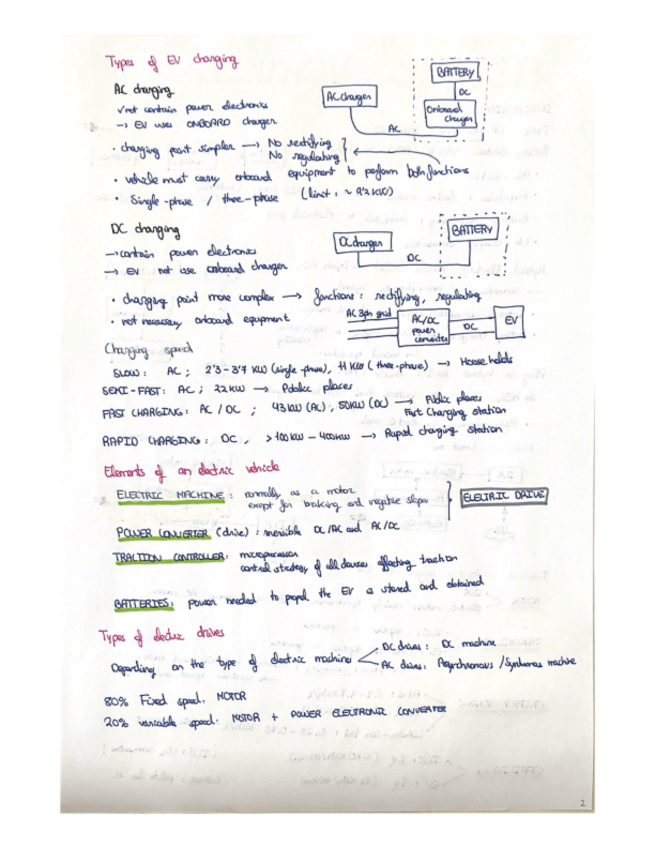 Types of EV charging
AC charging
√not contain power electronics
→ EV uses ONBOARD charger
• charging point simpler → No rectifying
No regulating
• vehicle must carry onboard equipment to perform both functions
• Single-phase / three-phase (limit: ~ 92 KW)
AC charger
AC
BATTERY
DC
Onboard charger
DC charging
→ contain power electronics
→ EV not use onboard charger
DC charger
DC
BATTERY
• charging point more complex → functions: rectifying, regulating
• not necessary onboard equipment
AC 3ph grid
AC/DC
power
converter
DC
EV
Charging speed
SLOW: AC; 2'3-3'7 KW (single-phase), 11 KW (three-phase) → Households
SEMI-FAST: AC; 22KW → Public places
FAST CHARGING: AC / DC ; 43KW (AC), 50KW (DC) → Public places
Fast Charging station
RAPID CHARGING: DC, >100KW - 400KW → Rapid charging station
Elements of an electric vehicle
ELECTRIC MACHINE: normally as a motor
except for braking and negative slopes
ELECTRIC DRIVE
POWER CONVERTER (drive): inversible DC/AC and AC/DC
TRACTION CONTROLLER: microprocessor
control strategy of all devices affecting traction
BATTERIES: power needed to propel the EV is stored and obtained
Types of electric drives
Depending on the type of electric machine
DC drives: DC machine
AC drives: Asynchronous / Synchronous machine
80% Fixed speed: MOTOR
20% variable speed: MOTOR + POWER ELECTRONIC CONVERTER
2